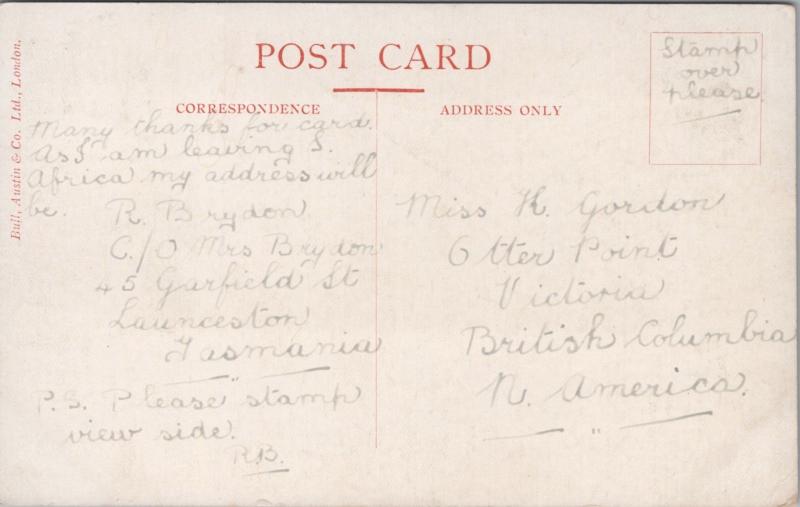 POST CARD
CORRESPONDENCE
Many thanks for card.
As I am leaving S.
Africa my address will
be. R. Brydon
C/O Mrs Brydon
45 Garfield St
Launceston
Tasmania
P.S. Please stamp
view side.
R.B.
ADDRESS ONLY
Stamp
over
please.
Miss K. Gordon
Otter Point
Victoria
British Columbia
N. America.
Bull, Austin & Co. Ltd., London.